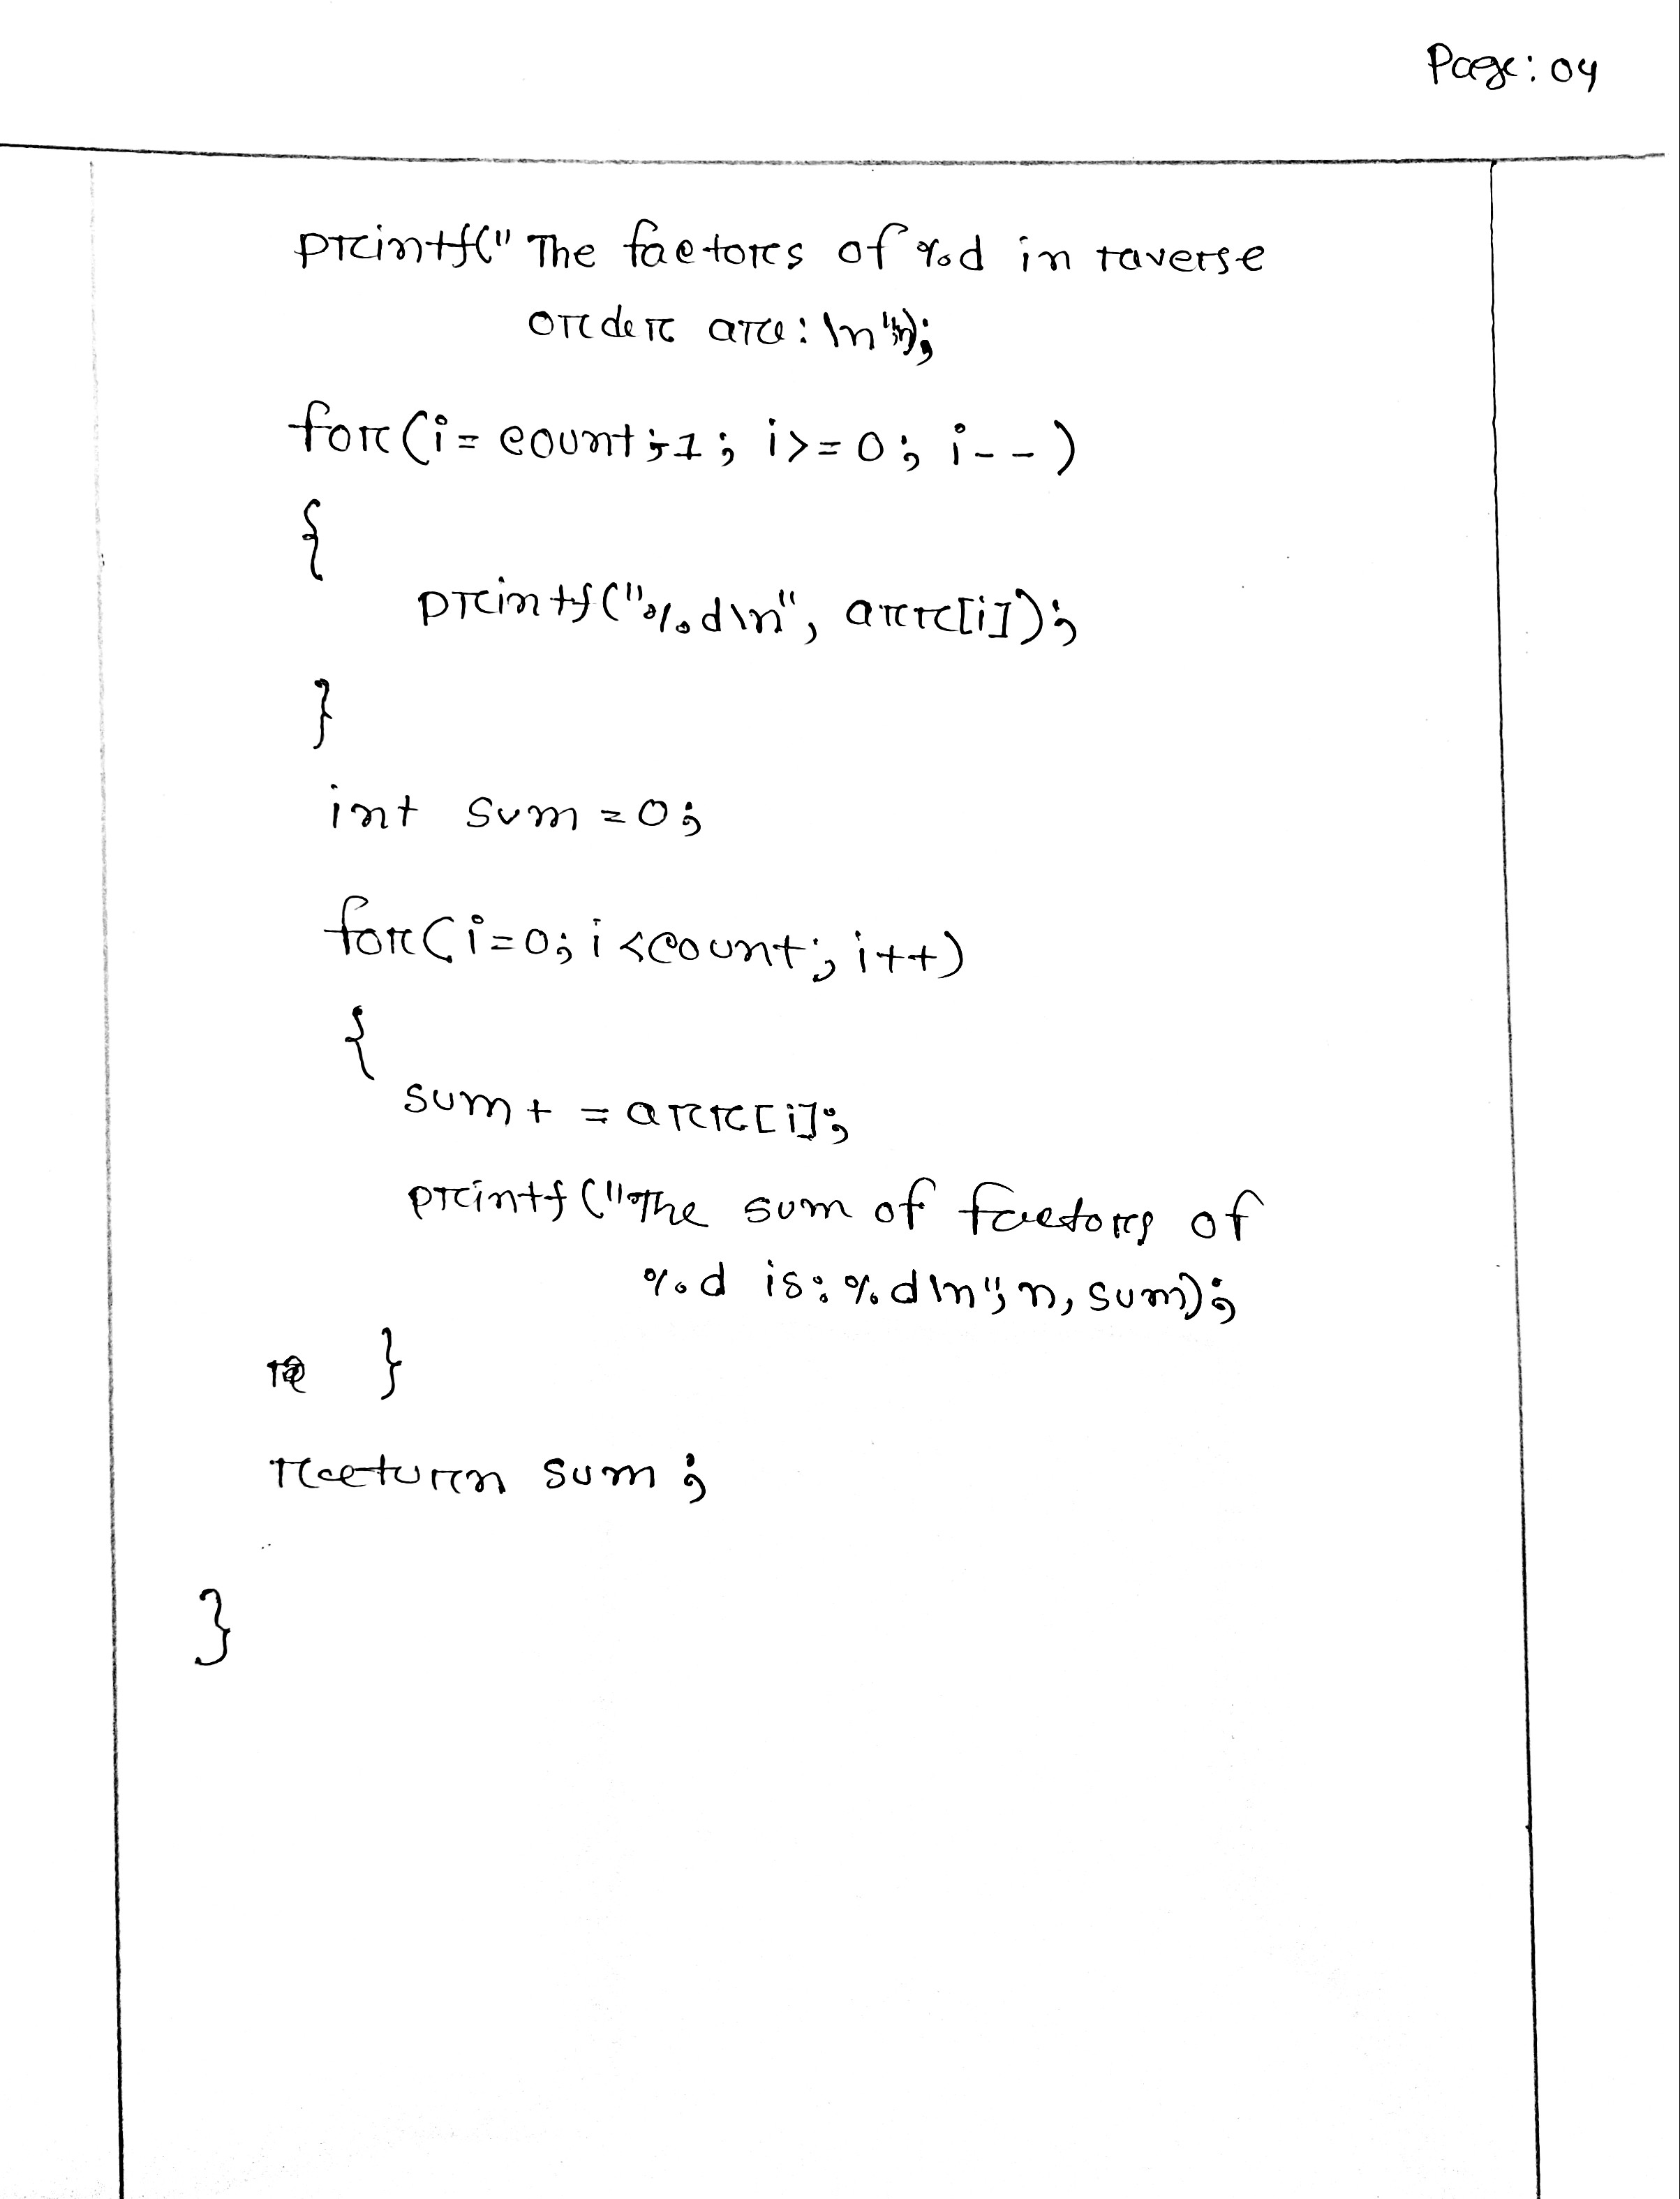 Page: 04
printf(" The factors of %d in raverse
order are: \n");
for(i= count;1; i>=0; i--)
{
printf("%d\n", arr[i]);
}
int sum =0;
for(i=0; i<count; i++)
{
sum+ = arr[i];
printf("The sum of factors of
%d is: %d\n", n, sum);
}
return sum;
}